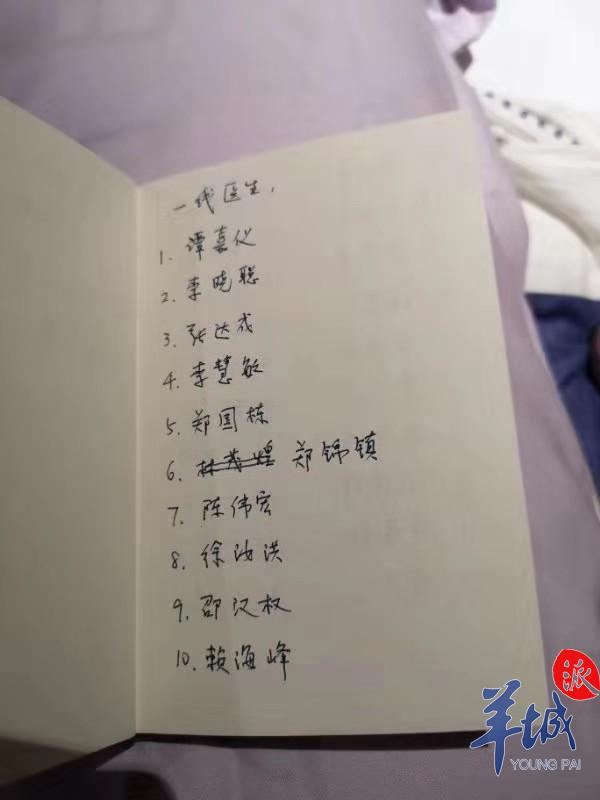 一线医生，
1. 谭嘉仪
2. 李晓聪
3. 张达成
4. 李慧敏
5. 郑国栋
6. 林茂煌 郑锦镇
7. 陈伟宏
8. 徐汝洪
9. 邵汉权
10. 赖海峰
羊城派
YOUNG PAI